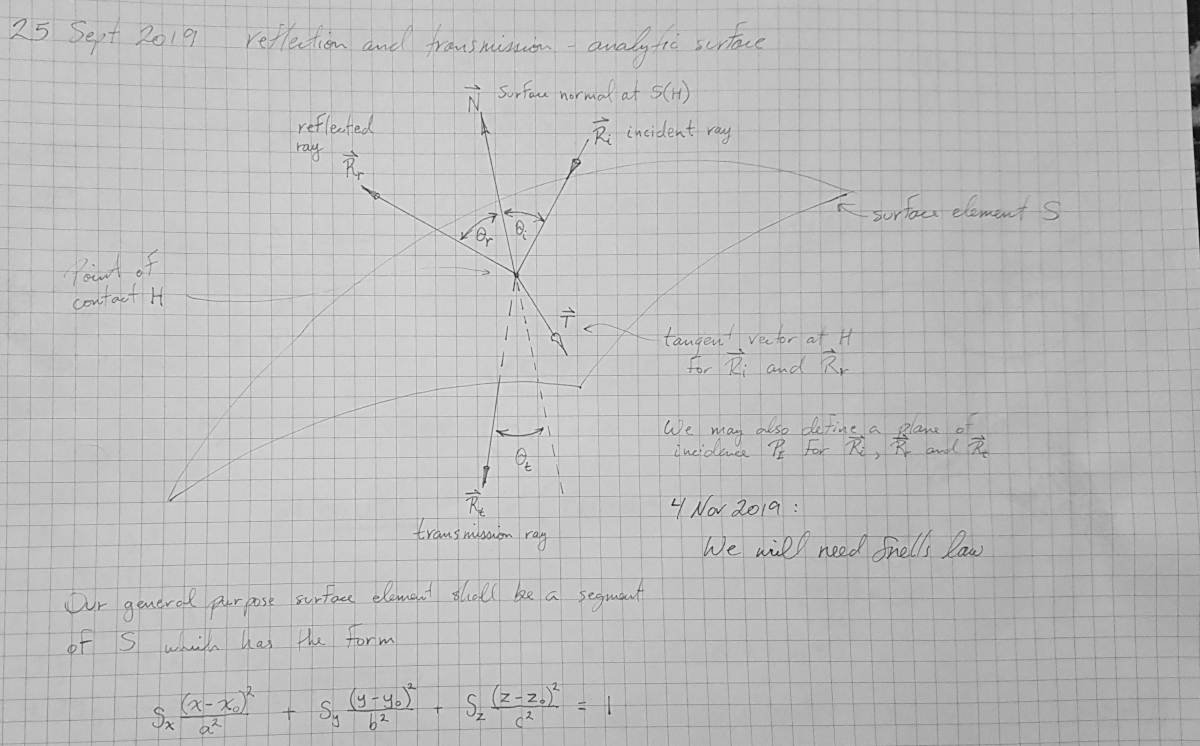 25 Sept 2019 reflection and transmission - analytic surface
N⃗ Surface normal at S(H)
reflected
ray
R⃗r
R⃗i incident ray
surface element S
θr
θi
Point of
contact H
T⃗
tangent vector at H
for R⃗i and R⃗r
We may also define a plane of
incidence PI for R⃗i, R⃗r and R⃗t
θt
R⃗t
transmission ray
4 Nov 2019 :
We will need Snells law
Our general purpose surface element shall be a segment
of S which has the form
Sx (x-x₀)²/a² + Sy (y-y₀)²/b² + Sz (z-z₀)²/c² = 1